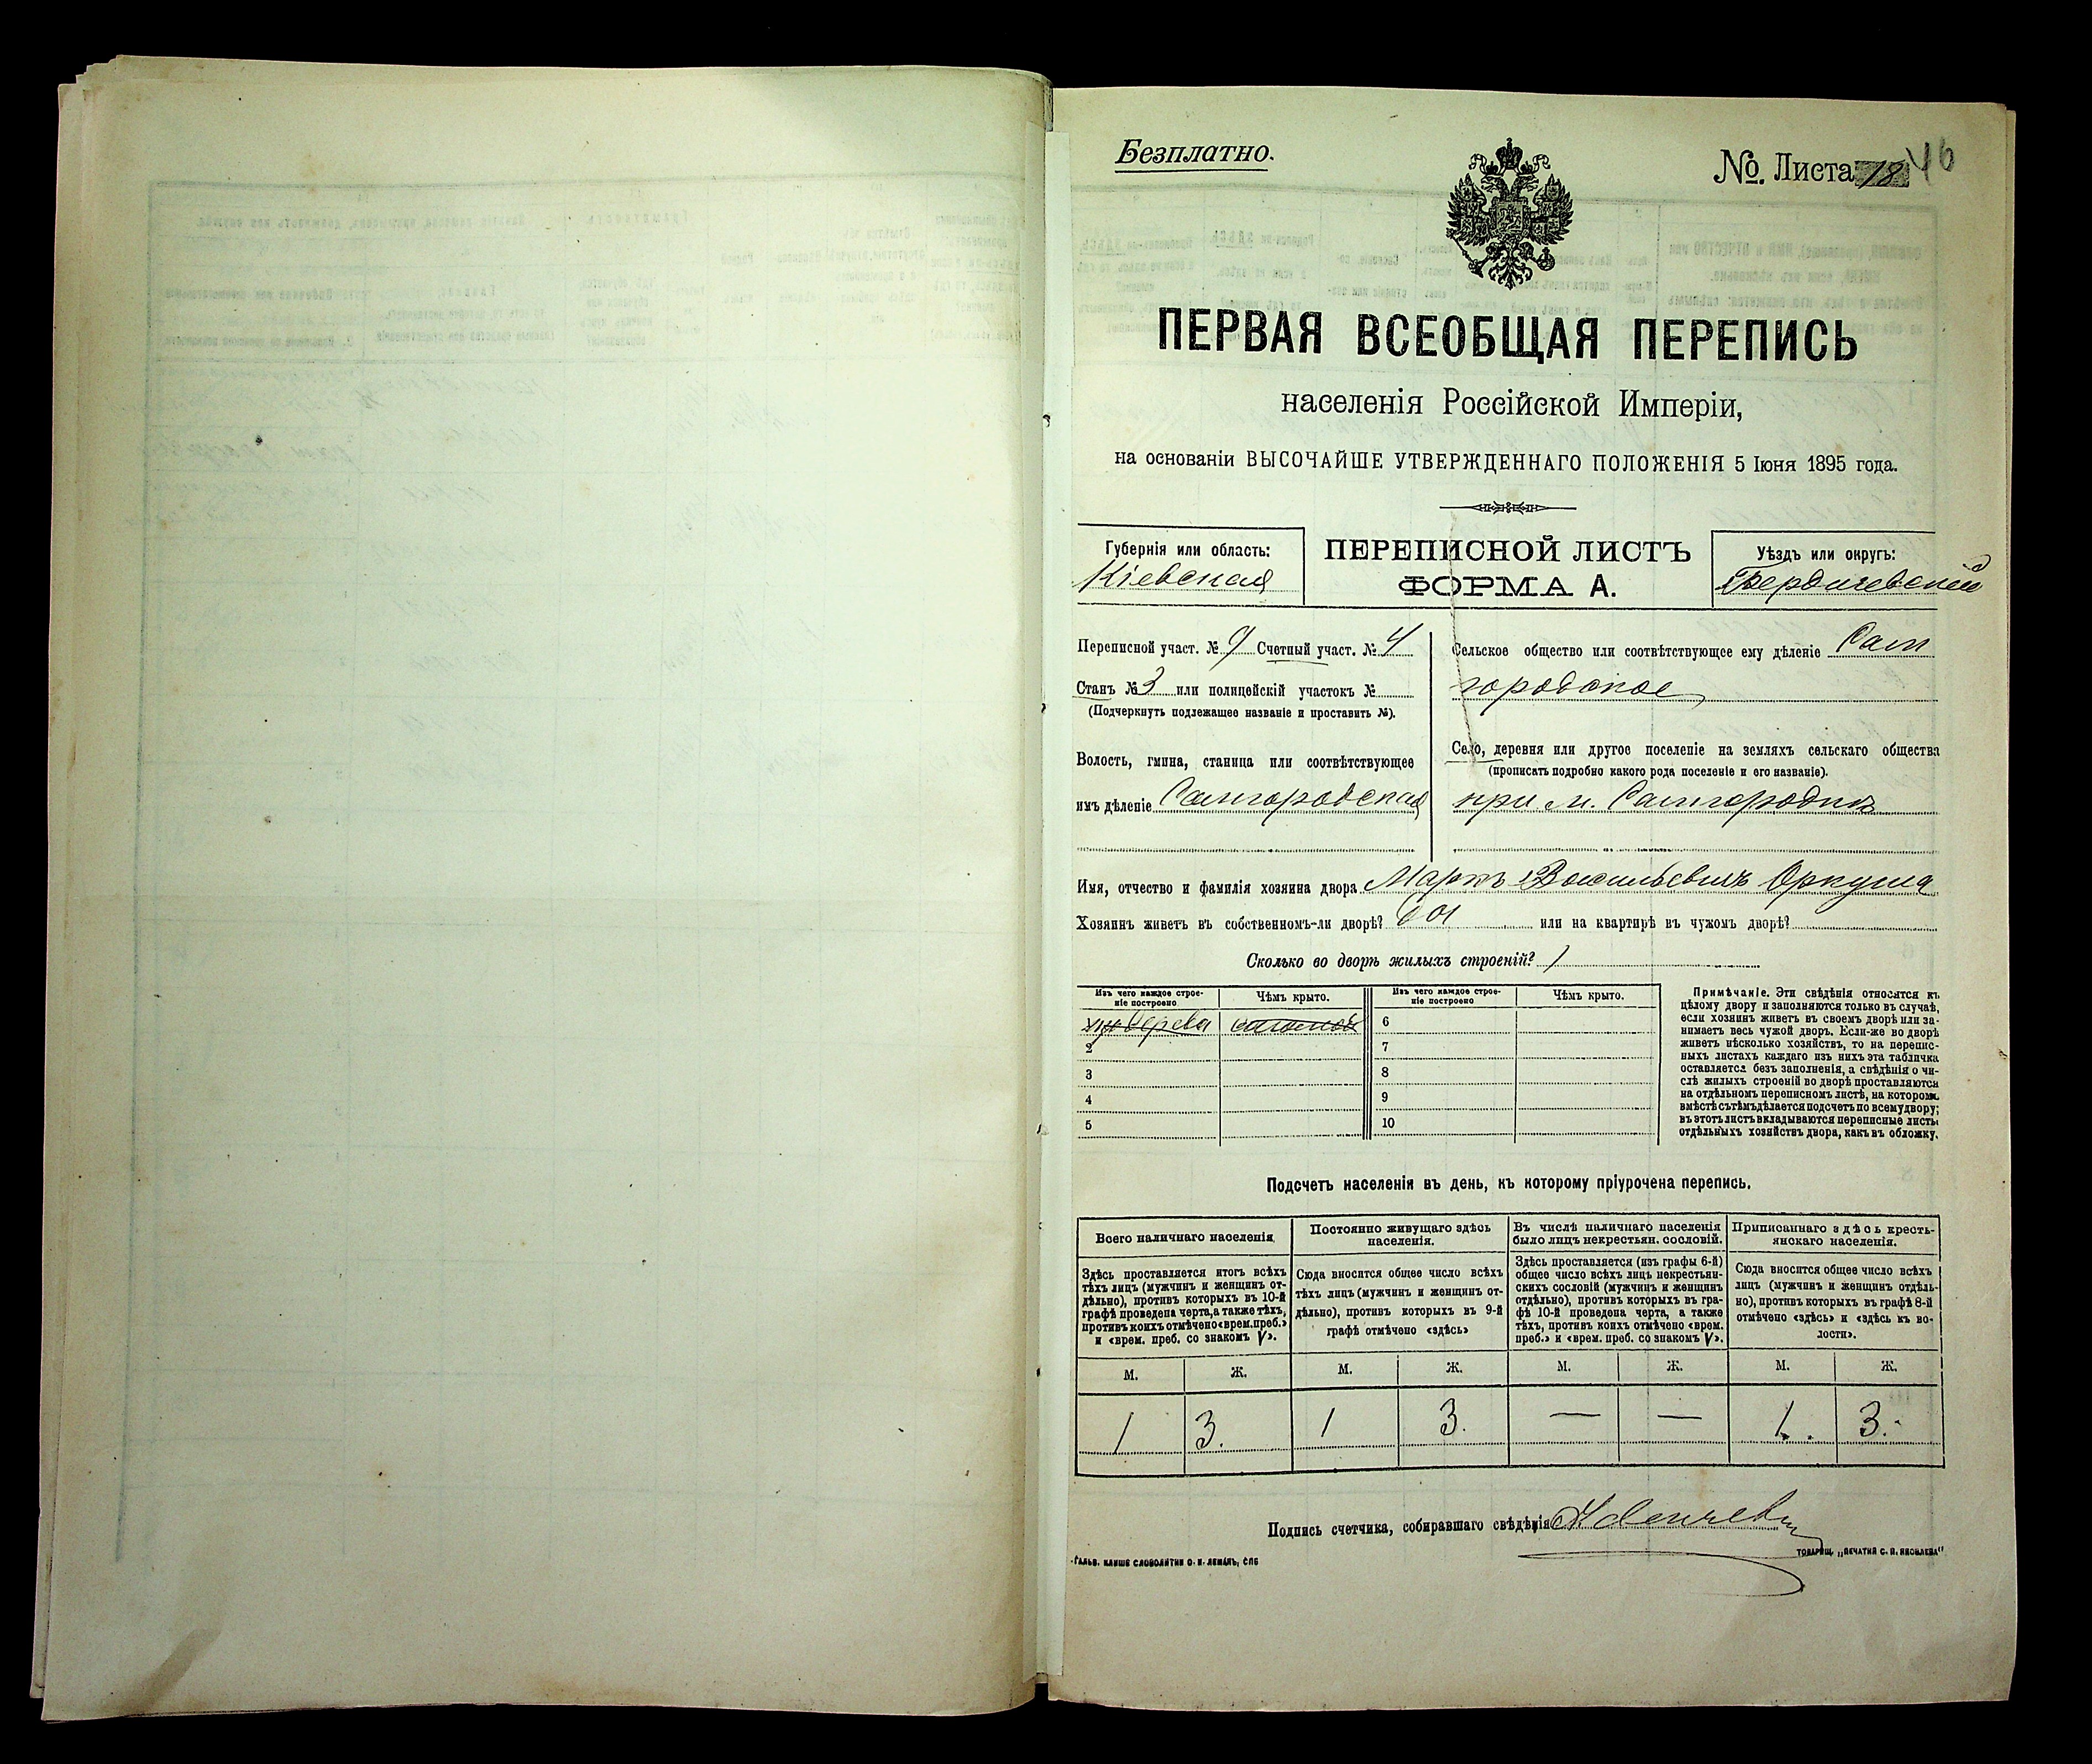 Безплатно.
№ Листа 18 46
ПЕРВАЯ ВСЕОБЩАЯ ПЕРЕПИСЬ
населенія Россійской Имперіи,
на основаніи ВЫСОЧАЙШЕ УТВЕРЖДЕННАГО ПОЛОЖЕНІЯ 5 Іюня 1895 года.
Губернія или область:
Кіевская
ПЕРЕПИСНОЙ ЛИСТЪ
ФОРМА А.
Уѣздъ или округъ:
Бердичевскій
Переписной участ. № 9 Счетный участ. № 4
Станъ № 3 или полицейскій участокъ №
(Подчеркнуть подлежащее названіе и проставить №).
Волость, гмина, станица или соотвѣтствующее
имъ дѣленіе Самгородская
Сельское общество или соотвѣтствующее ему дѣленіе Сам
городское
Село, деревня или другое поселеніе на земляхъ сельскаго общества
(прописать подробно какого рода поселеніе и его названіе).
при м. Самгородкѣ
Имя, отчество и фамилія хозяина двора Маркъ Васильевичъ Оркуша
Хозяинъ живетъ въ собственномъ-ли дворѣ? да или на квартирѣ въ чужом дворѣ?
Сколько во дворѣ жилыхъ строеній? 1
Изъ чего каждое строе-
ніе построено
Чѣмъ крыто.
Изъ чего каждое строе-
ніе построено
Чѣмъ крыто.
изъ дерева соломой 6
2 7
3 8
4 9
5 10
Примѣчаніе. Эти свѣдѣнія относятся къ
цѣлому двору и заполняются только въ случаѣ,
если хозяинъ живетъ въ своемъ дворѣ или за-
нимаетъ весь чужой дворъ. Если-же во дворѣ
живетъ нѣсколько хозяйствъ, то на перепис-
ныхъ листахъ каждаго изъ нихъ эта табличка
оставляется безъ заполненія, а свѣдѣнія о чи-
слѣ жилыхъ строеній во дворѣ проставляются
на отдѣльномъ переписномъ листѣ, на которомъ
вмѣстѣ съ тѣмъ дѣлается подсчетъ по всему двору;
въ этотъ листъ вкладываются переписные листы
отдѣльныхъ хозяйствъ двора, какъ въ обложку.
Подсчетъ населенія въ день, къ которому пріурочена перепись.
Всего наличнаго населенія.
Здѣсь проставляется итогъ всѣхъ
тѣхъ лицъ (мужчинъ и женщинъ от-
дѣльно), противъ которыхъ въ 10-й
графѣ проведена черта, а также тѣхъ,
противъ коихъ отмѣчено «врем. преб.»
и «врем. преб. со знакомъ V».
Постоянно живущаго здѣсь
населенія.
Сюда вносится общее число всѣхъ
тѣхъ лицъ (мужчинъ и женщинъ от-
дѣльно), противъ которыхъ въ 9-й
графѣ отмѣчено «здѣсь»
Въ числѣ наличнаго населенія
было лицъ некрестьян. сословій.
Здѣсь проставляется (изъ графы 6-й)
общее число всѣхъ лицъ некрестьян-
скихъ сословій (мужчинъ и женщинъ
отдѣльно), противъ которыхъ въ гра-
фѣ 10-й проведена черта, а также
тѣхъ, противъ коихъ отмѣчено «врем.
преб.» и «врем. преб. со знакомъ V».
Приписаннаго здѣсь кресть-
янскаго населенія.
Сюда вносится общее число всѣхъ
лицъ (мужчинъ и женщинъ отдѣль-
но), противъ которыхъ въ графѣ 8-й
отмѣчено «здѣсь» и «здѣсь къ во-
лости».
М. Ж. М. Ж. М. Ж. М. Ж.
1 3. 1 3. — — 1. 3.
Подпись счетчика, собиравшаго свѣдѣнія
Гальв. клише словолитни О. И. Леманъ, СПБ
Товарищ. „Печатня С. П. Яковлева"